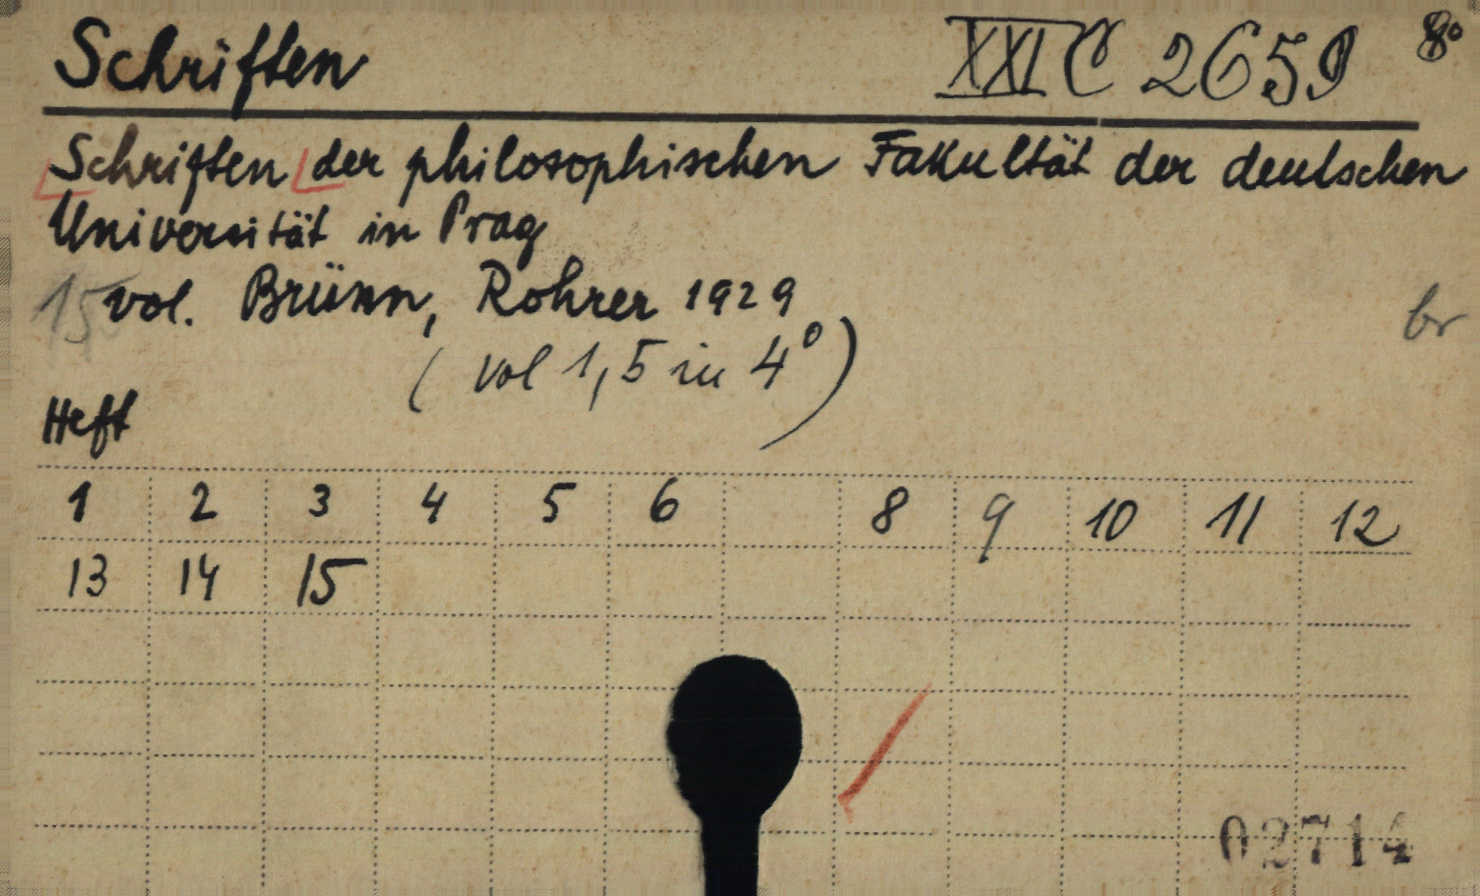 Schriften XXI C 2659 8°
Schriften der philosophischen Fakultät der deutschen
Universität in Prag
15 vol. Brünn, Rohrer 1929 br
( vol 1, 5 in 4° )
Heft
1 2 3 4 5 6 8 9 10 11 12
13 14 15
02714